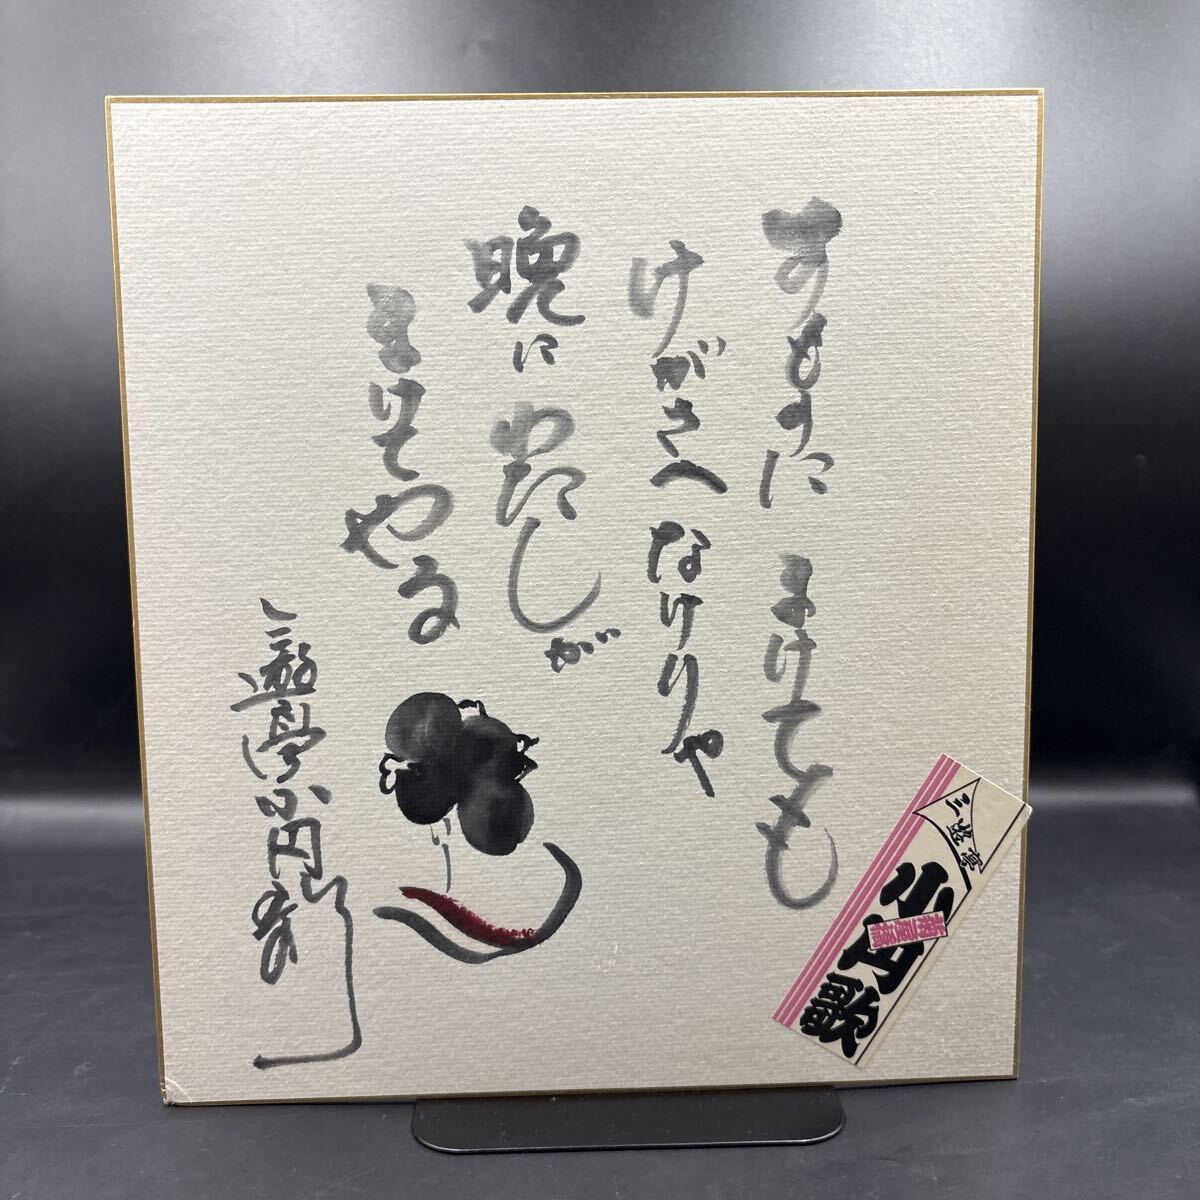 すもうに まけても
けがさへ なけりゃ
晩に わたしが
まけてやる
三遊亭小円歌
三遊亭
小円歌